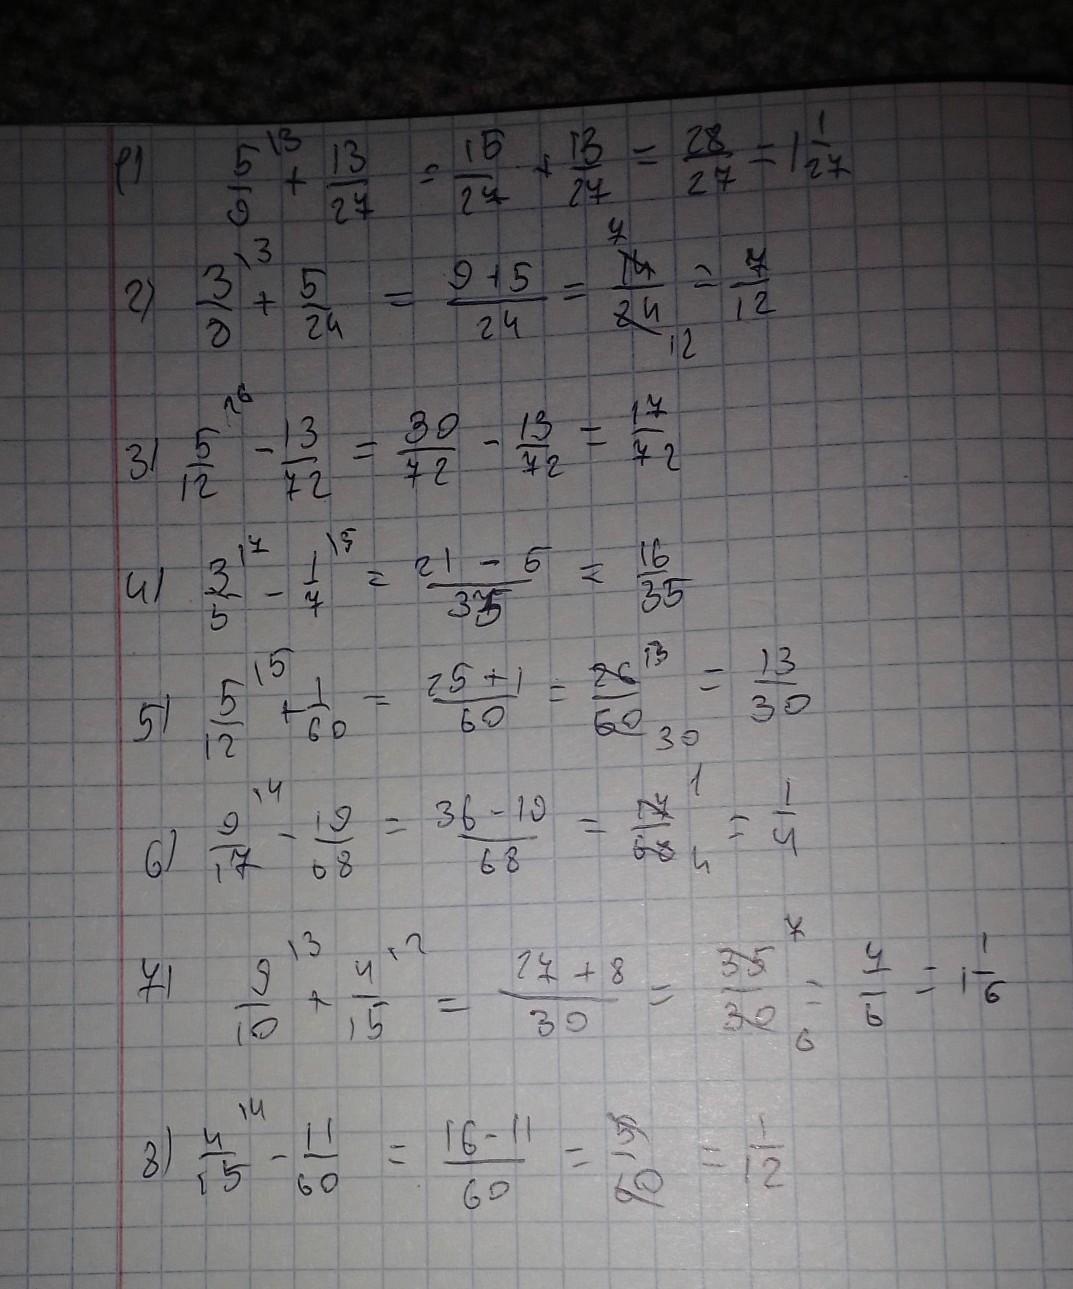 1) 5/9 \3 + 13/27 = 15/27 + 13/27 = 28/27 = 1 1/27
2) 3/8 \3 + 5/24 = 9+5/24 = 14/24 7 12 = 7/12
3) 5/12 \6 - 13/72 = 30/72 - 13/72 = 17/72
4) 3/5 \7 - 1/7 \5 = 21-5/35 = 16/35
5) 5/12 \5 + 1/60 = 25+1/60 = 26/60 13 30 = 13/30
6) 9/17 \4 - 19/68 = 36-19/68 = 17/68 1 4 = 1/4
7) 9/10 \3 + 4/15 \2 = 27+8/30 = 35/30 7 6 = 7/6 = 1 1/6
8) 4/15 \4 - 11/60 = 16-11/60 = 5/60 = 1/12